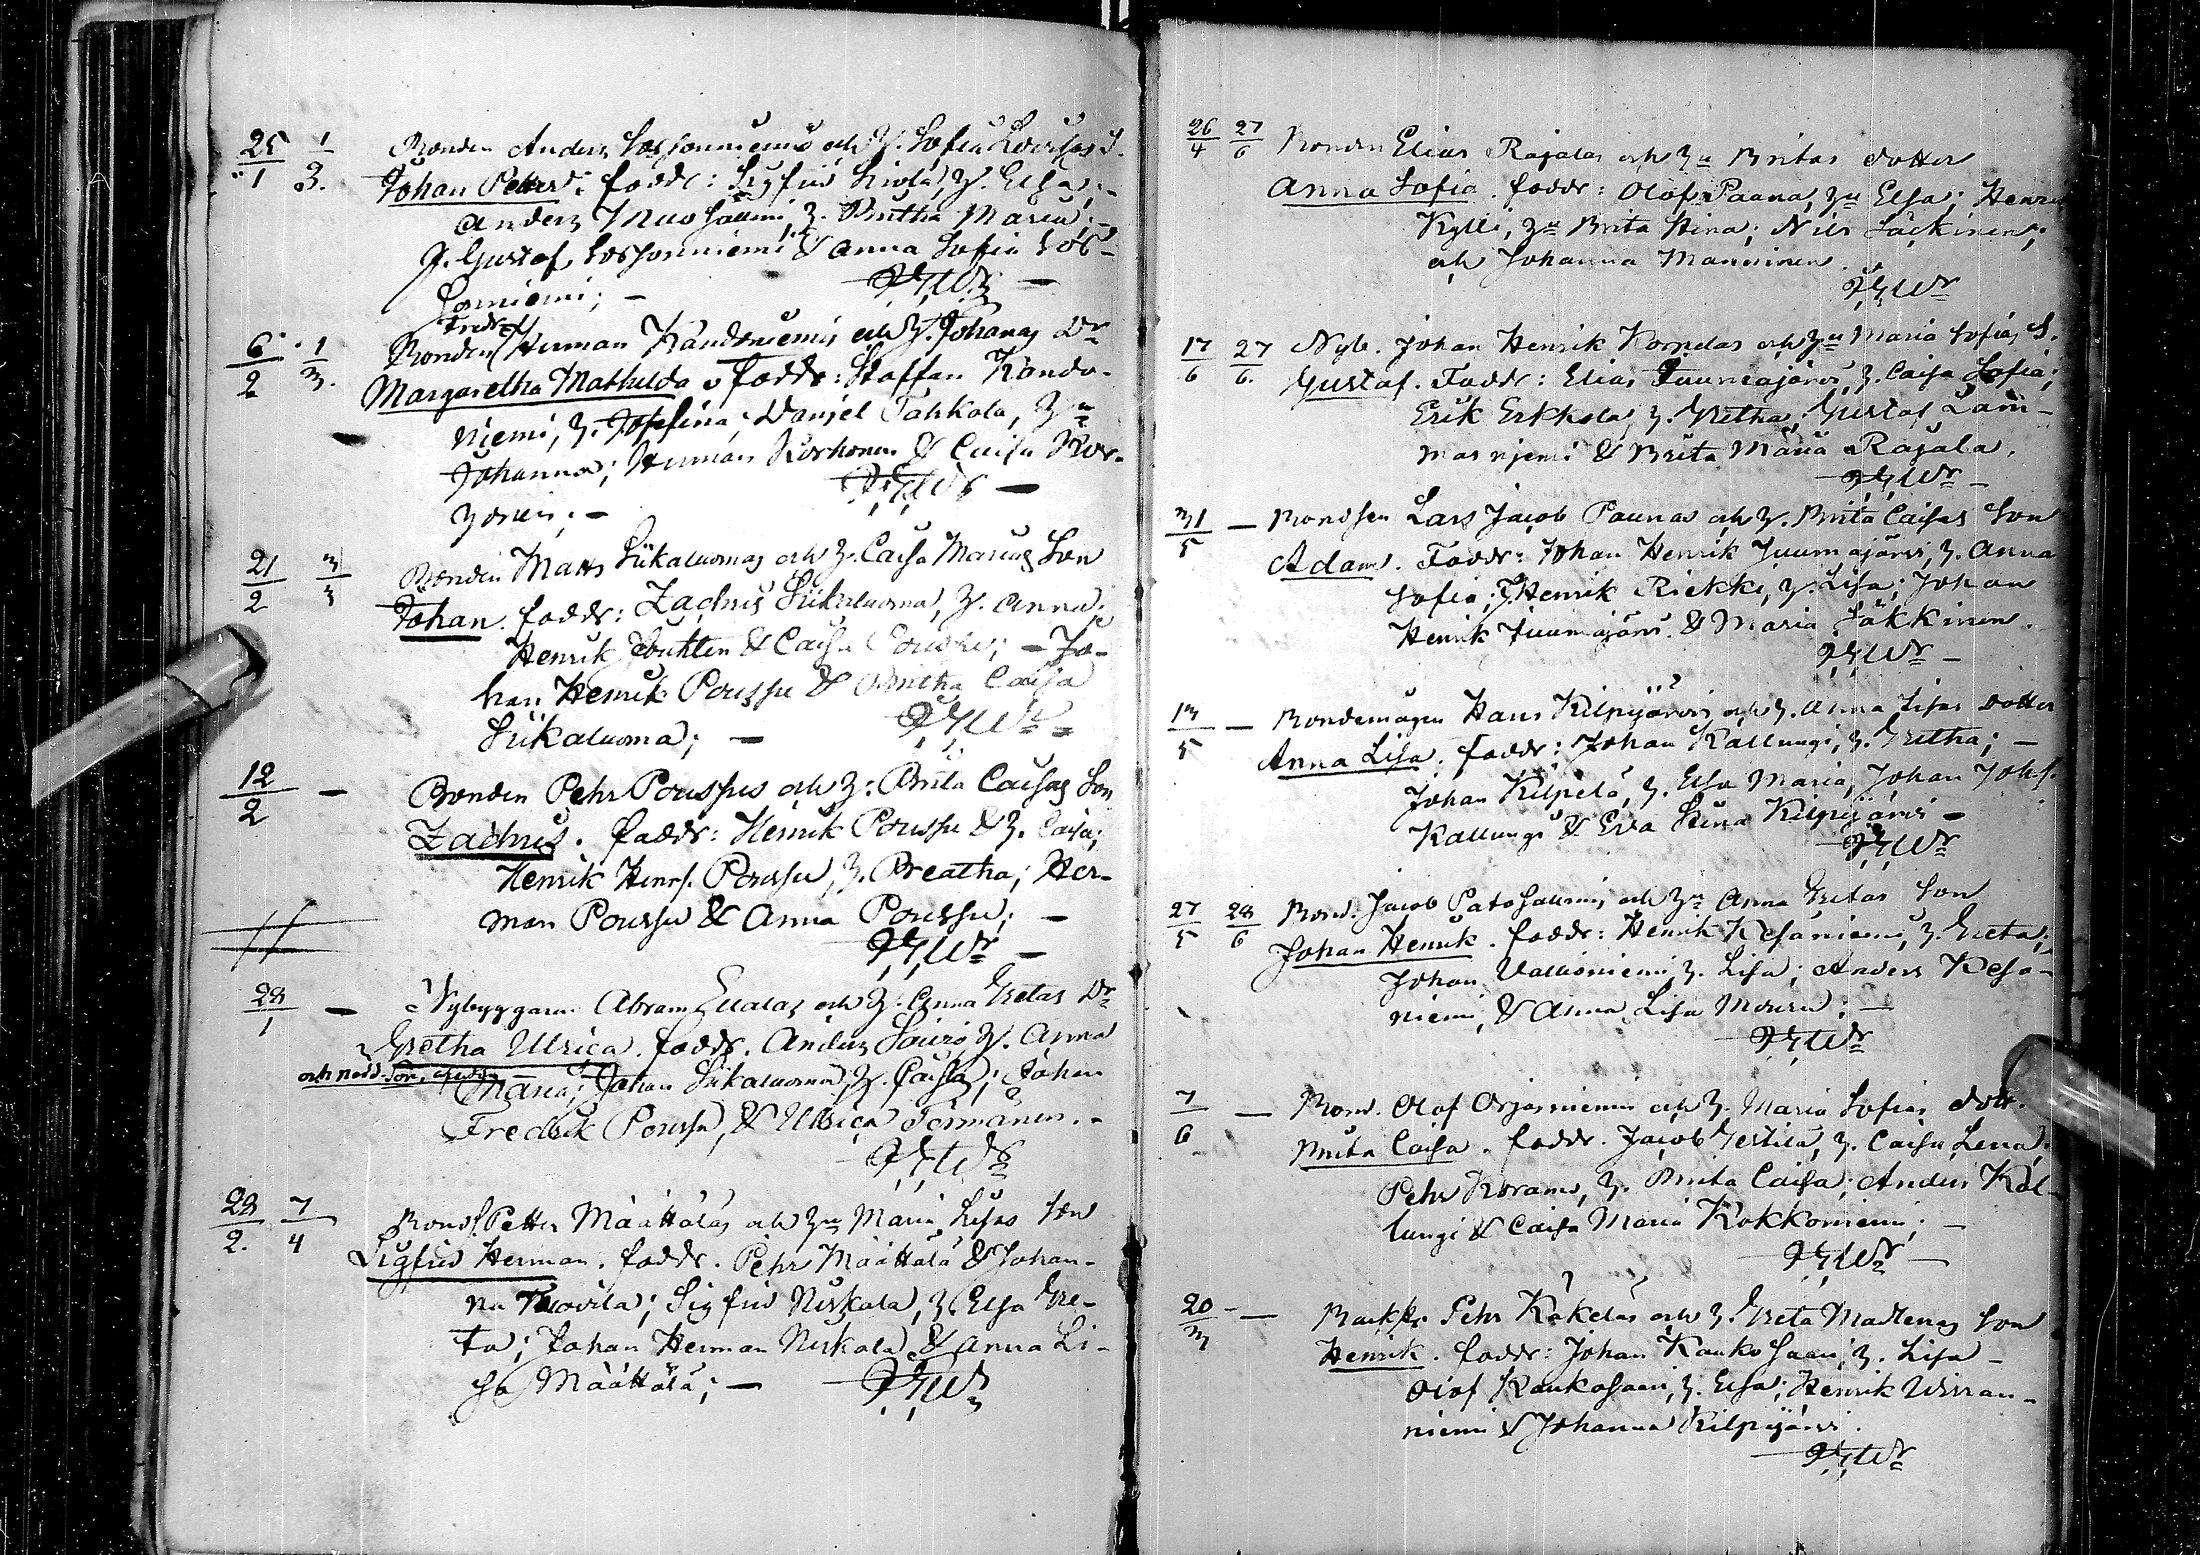 25/1 1/3. Bonden Anders Lossonniemis och H. Sofia Lovisas S.
Johan Petter. faddr: Sigfrid Kiola, H. Elsa;
Anders Mursallmi, H. Britha Maria;
J. Gustaf Lossonniemi & Anna Sofia Los-
sonniemi; —
Fredr.
6/2 1/3. Bonden Herman Kandoniemis och H. Johanas Dr
Margaretha Mathilda. faddr: Staffan Kando-
niemi, H. Josefina; Daniel Tahkola, Hu
Johanna; Herman Korhonen & Caisa Kor-
honen; —
21/2 3/3 Bonden Matts Siikaluomas och H. Caisa Marias Son
Johan. faddr: Zachris Siikaluoma, H. Anna;
Henrik & Caisa Poussu; — Jo-
han Henrik Poussu & Britha Caisa
Siikaluoma; —
12/2 — Bonden Pehr Poussus och H. Brita Caisas Son
Zachris. faddr: Henrik Poussu & H. Caisa;
Henrik Henrs. Poussu, H. Breatha; Her-
man Poussu & Anna Poussu; —
28/1 — Nybyggaren Abram Elialas och H. Anna Gretas Dr
Gretha Ulrica. faddr. Anders Souro, H. Anna
Maria; Johan Siikaluoma, H. Caisa; Johan
Fredrik Poussu, & Ulrica Törmänen. -
28/2. 7/4 Bonds. Petter Määttäläs och Hu Maria Lisas Son
Sigfrid Herman. faddr. Pehr Määttälä & Johan-
na Kuovila; Sigfrid Niskala, H. Elsa Gre-
ta; Johan Herman Niskala & Anna Li-
sa Määttälä; —
26/4 27/6 Bonden Elias Rajalas och Hu Britas dotter
Anna Sofia. faddr: Olof Paana, Hu Elsa; Henrik
Kylli, Hu Brita Stina; Nils Säckinen;
och Johanna Manninen.
17/6 27/6. Nyb. Johan Henrik Korpelas och Hu Maria Sofias S.
Gustaf. Faddr: Elias Juumajärvi, H. Caisa Sofia;
Erik Erkkola, H. Gretha; Gustaf Lam-
masnjemi & Brita Maria Rajala.
31/5 — Bondsen Lars Jacob Paunas och H. Brita Caisas Son
Adam. Faddr: Johan Henrik Juumajärvi, H. Anna
Sofia; J. Henrik Riekki, H. Lisa; Johan
Henrik Juumajärvi & Maria Säkkinen.
13/5 — Bondemågen Hans Kilpijärvis och H. Anna Lisas dotter
Anna Lisa. faddr: Johan Kallungi, H. Gretha; —
Johan Kilpelä, H. Elsa Maria; Johan Johs.
Kallungi & Eva Stina Kilpijärvi —
27/5 28/6 Bond. Jacob Patosalmis och Hu Anna Gretas Son
Johan Henrik. faddr: Henrik Kesäniemi, H. Greta;
Johan Vallioniemi, H. Lisa; Anders Kesä-
niemi, & Anna Lisa Mouru; —
7/6 — Bond. Olof Orjasniemis och H. Maria Sofias dotr.
Brita Caisa. faddr. Jacob Yestilä, H. Caisa Lena;
Pehr Korame, H. Brita Caisa; Anders Kal-
lungi & Caisa Maria Kokkoniemi; —
20/3 — Pehr Käkeläs och H. Greta Madlenas Son
Henrik. faddr: Johan Kaukosaari, H. Lisa —
Olof Kaukosaari, H. Elsa; Henrik Wiran-
niemi & Johanna Kilpijärvi.